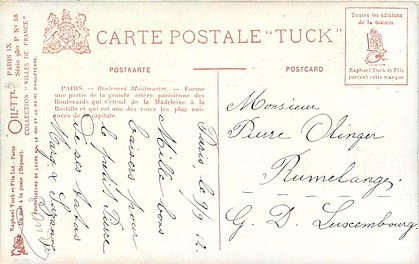 CARTE POSTALE "TUCK"
POSTKARTE
POSTCARD
Toutes les éditions
de la maison
Raphael Tuck et Fils
portent cette marque
PARIS. — Boulevard Montmartre. — Forme
une partie de la grande artère parisienne des
Boulevards qui s'étend de la Madeleine à la
Bastille et qui est une des voies les plus anim-
ées de la capitale.
OILETTE
PARIS IX
Série 980 P Nº 58
COLLECTION "VILLES DE FRANCE"
Raphael Tuck et Fils Ltd. - Paris
Un mot à la poste (Déposé)
Paris, le 9/9 12.
Mille bons
baisers pour
le petit Pierre
de ses tatas
Marg &
Monsieur
Pierre Olinger
Rumelange
G. D. Luxembourg.